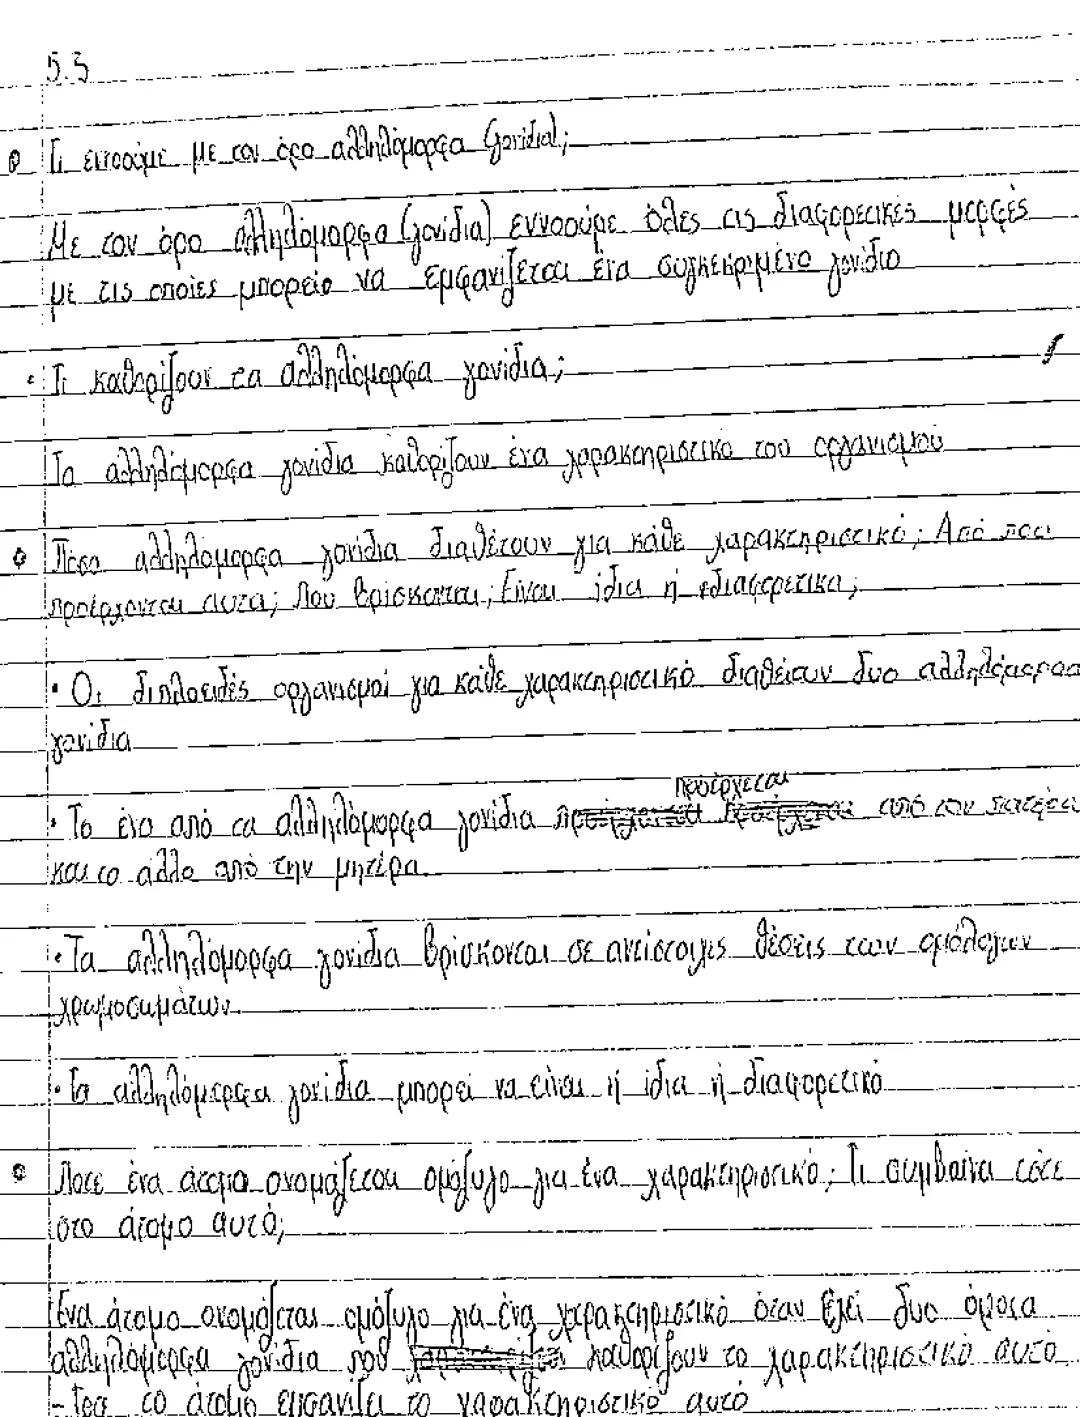 5.3
Τι εννοούμε με τον όρο αλληλόμορφα (γονίδια);
Με τον όρο αλληλόμορφα (γονίδια) εννοούμε όλες τις διαφορετικές μορφές
με τις οποίες μπορείο να εμφανίζεται ένα συγκεκριμένο γονίδιο
Τι καθορίζουν τα αλληλόμορφα γονίδια;
Τα αλληλόμορφα γονίδια καθορίζουν ένα χαρακτηριστικό του οργανισμού
Πόσα αλληλόμορφα γονίδια διαθέτουν για κάθε χαρακτηριστικό; Από που
προέρχονται αυτα; Που βρίσκονται; Είναι ίδια ή διαφορετικα;
• Οι διπλοειδές οργανισμοί για κάθε χαρακτηριστικό διαθέτουν δυο αλληλόμορφα
γονίδια
προέρχεται
• Το ένα από τα αλληλόμορφα γονίδια από τον πατέρα
και το άλλο από την μητέρα.
• Τα αλληλόμορφα γονίδια βρίσκονται σε αντίστοιχες θέσεις των ομόλογων
χρωμοσωμάτων.
• Τα αλληλόμορφα γονίδια μπορεί να είναι ή ίδια ή διαφορετικά
Ποτε ένα άτομο ονομάζεται ομόζυγο για ένα χαρακτηριστικό; Τι συμβαίνει τότε
στο άτομο αυτό;
Ένα άτομο ονομάζεται ομόζυγο για ένα χαρακτηριστικό όταν έχει δυο όμοια
αλληλόμορφα γονίδια που καθορίζουν το χαρακτηριστικό αυτό
το άτομο εμφανίζει το χαρακτηριστικό αυτό